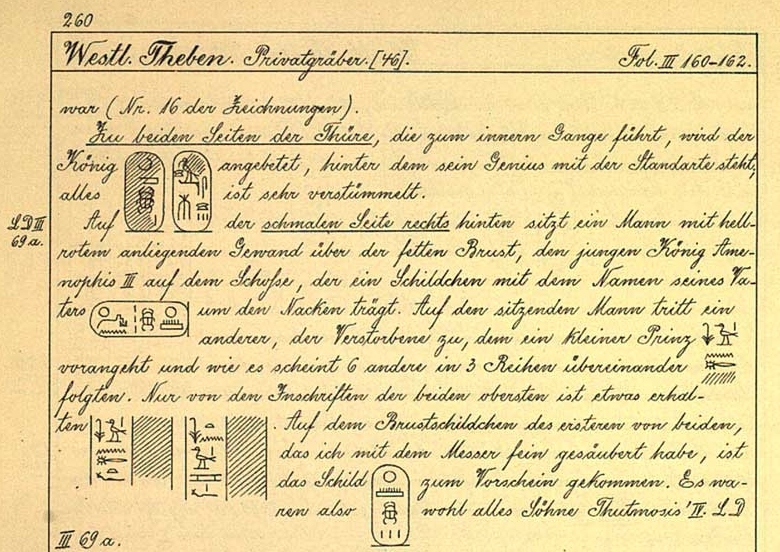 260
Westl. Theben. Privatgräber. [46]. Fol. III 160-162.
war (Nr. 16 der Zeichnungen).
Zu beiden Seiten der Thüre, die zum innern Gange führt, wird der
König angebetet, hinter dem sein Genius mit der Standarte steht,
alles ist sehr verstümmelt.
LD III
69 a.
Auf der schmalen Seite rechts hinten sitzt ein Mann mit hell-
rotem anliegenden Gewand über der fetten Brust, den jungen König Ame-
nophis III auf dem Schoſse, der ein Schildchen mit dem Namen seines Va-
ters um den Nacken trägt. Auf den sitzenden Mann tritt ein
anderer, der Verstorbene zu, dem ein kleiner Prinz
vorangeht und wie es scheint 6 andere in 3 Reihen übereinander
folgten. Nur von den Inschriften der beiden obersten ist etwas erhal-
ten. Auf dem Brustschildchen des ersteren von beiden,
das ich mit dem Messer fein gesäubert habe, ist
das Schild zum Vorschein gekommen. Es wa-
ren also wohl alles Söhne Thutmosis' IV. LD
III 69 a.